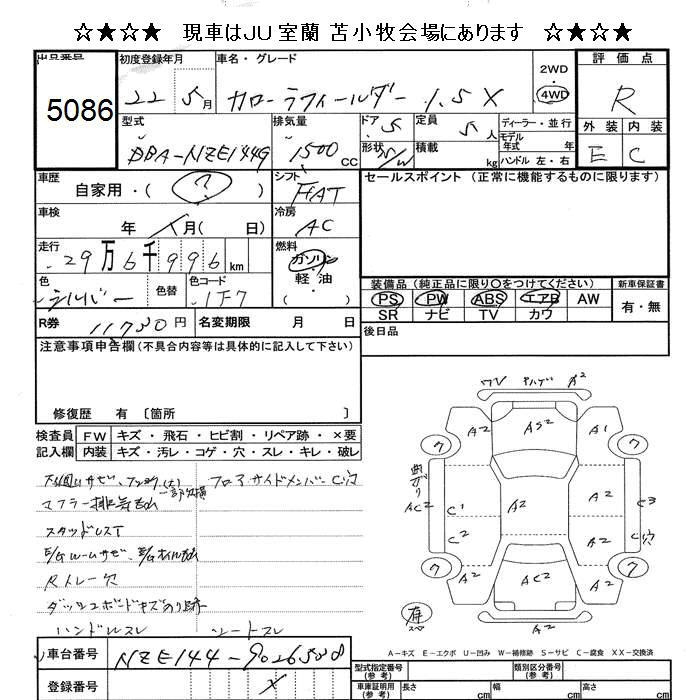 ☆★☆★ 現車はJU室蘭 苫小牧会場にあります ☆★☆★
出品番号 初度登録年月 車名・グレード 2WD 4WD 評価点
5086 22 5月 カローラフィールダー 1.5X R
型式 排気量 ドア 5 定員 5人 ディーラー・並行 外装 内装
DBA-NZE144G 1500CC 形状 S/W 積載 kg モデル年式 年式 ハンドル 左・右 E C
車歴 自家用・( ? ) シフト FAT セールスポイント (正常に機能するものに限ります)
車検 年 月( 日) 冷房 AC
走行 29万6千996km 燃料 ガソリン 軽油 ( )
色 シルバー 色替 色コード 1F7 装備品 (純正品に限り○をつけてください) 新車保証書
PS PW ABS エアB AW 有・無
SR ナビ TV カワ
R券 11730円 名変期限 月 日 後日品
注意事項申告欄(不具合内容等は具体的に記入して下さい)
修復歴 有 〔箇所 〕
検査員 FW キズ・飛石・ヒビ割・リペア跡・×要
記入欄 内装 キズ・汚レ・コゲ・穴・スレ・キレ・破レ
フロアサイドメンバーC穴
マフラー排気もれ
スタッドレスT
E/Gルームサビ、E/Gオイルもれ
Rトレー欠
ダッシュボードキズのり跡
ハンドルスレ シートスレ
A2 AS2 A1
ワ ワ
AC2 C1 A2 C3
C2 C穴
ワ ワ
A2 AC2 A2
A2
A－キズ E－エクボ U－凹み W－補修跡 S－サビ C－腐食 XX－交換済
車台番号 NZE144-9026508
登録番号 ×
型式指定番号(参考) 類別区分番号(参考)
車庫証明用(参考) 長さ cm 幅 cm 高さ cm